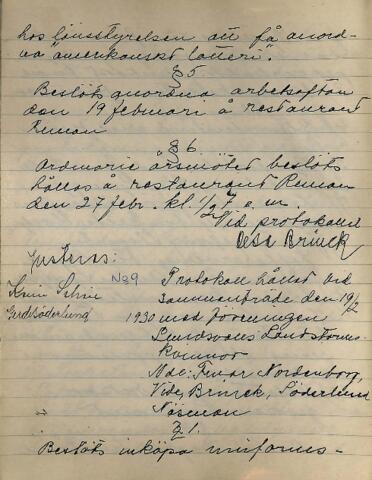 hos länsstyrelsen att få anord-
na "amerikanskt lotteri".
§ 5
Beslöts anordna arbetsafton
den 19 februari å restaurant
Reman
§ 6.
Ordinarie årsmötet beslöts
hållas å restaurant Reman
den 27 febr. kl. 1/2 7 e. m.
Vid protokollet
Brinck
Justeras:
No 9 Protokoll hållet vid
sammanträde den 19/2
Söderlund 1930 med föreningen
Landstorms-
kvinnor
Nde: Fruar Nordenborg,
Vide, Brinck, Söderlund
§ 1.
Beslöts inköpa uniforms-